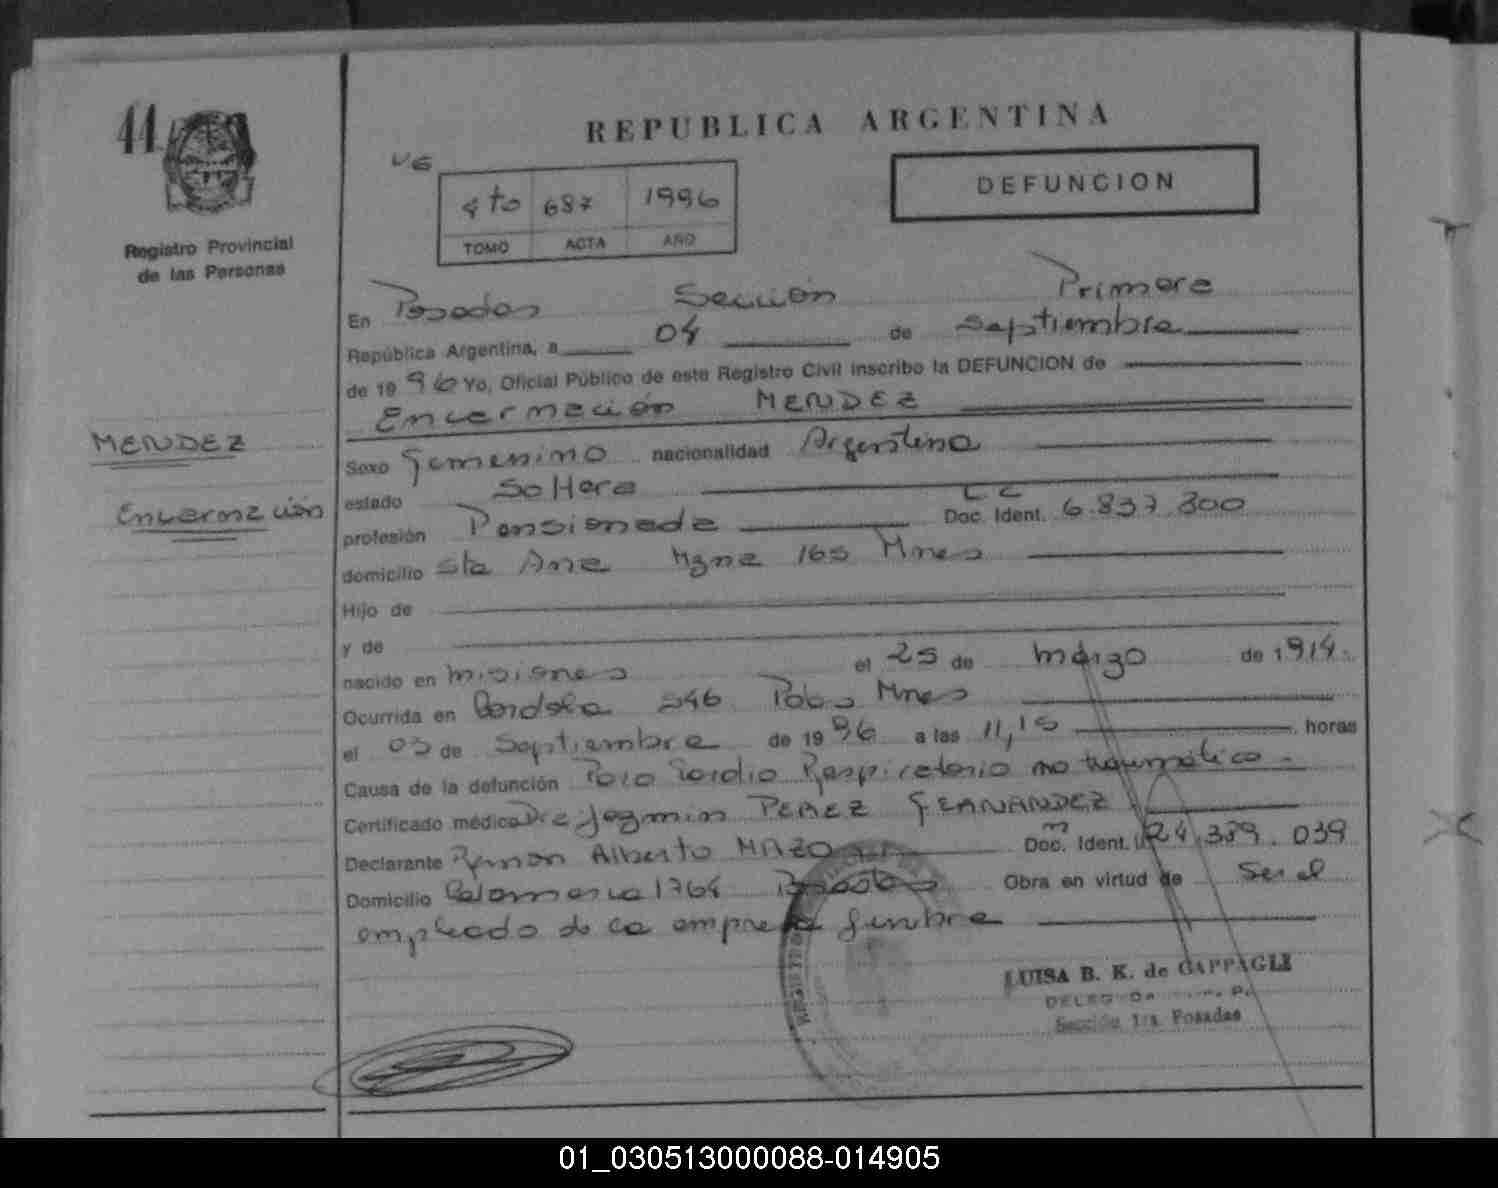 44
REPUBLICA ARGENTINA
DEFUNCION
4to 687 1996
TOMO ACTA AÑO
Registro Provincial
de las Personas
En Posadas Sección Primera
República Argentina, a 04 de Septiembre
de 1996 Yo, Oficial Público de este Registro Civil inscribo la DEFUNCION de
Encarnación MENDEZ
MENDEZ
Encarnación
Sexo Femenino nacionalidad Argentina
estado Soltera
profesión Pensionada Doc. Ident. LC 6.837.300
domicilio Sta Ana Mzna 165 Mnes
Hijo de
y de
nacido en Misiones el 25 de Marzo de 1914.
Ocurrida en Cordoba Pdas Mnes
el 03 de Septiembre de 1996 a las 11,15 horas
Causa de la defunción Paro Cardio Respiratorio no traumático.
Certificado médico Dra Jazmin PEREZ FERNANDEZ
Declarante Ramon Alberto MAZO Doc. Ident. 24.389.039
Domicilio 1764 Posadas Obra en virtud de Ser el
empleado de la empresa funebre
LUISA B. K. de CAPPAGLI
Sección 1ra. Posadas
01_030513000088-014905